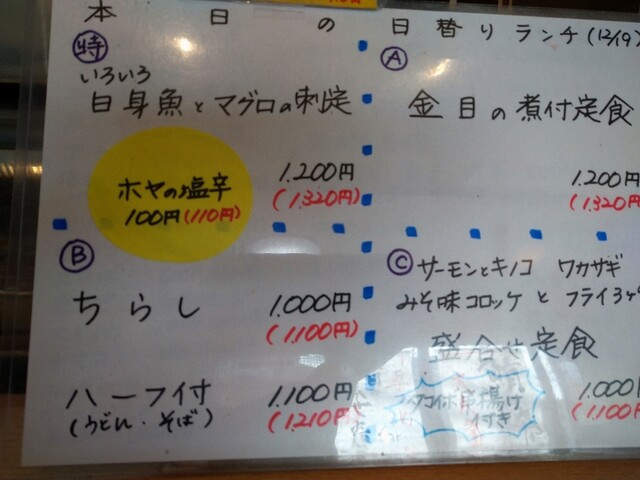 本日の日替りランチ(12/19)
特
いろいろ
白身魚とマグロの刺定
1.200円
(1.320円)
ホヤの塩辛
100円(110円)
A
金目の煮付定食
1.200円
(1.320円
B
ちらし
1.000円
(1.100円)
ハーフ付
(うどん・そば)
1.100円
(1.210円)
C
サーモンとキノコ ワカサギ
みそ味コロッケ と フライ3ケ
盛合せ定食
1.000
(1.100
串揚げ
付き